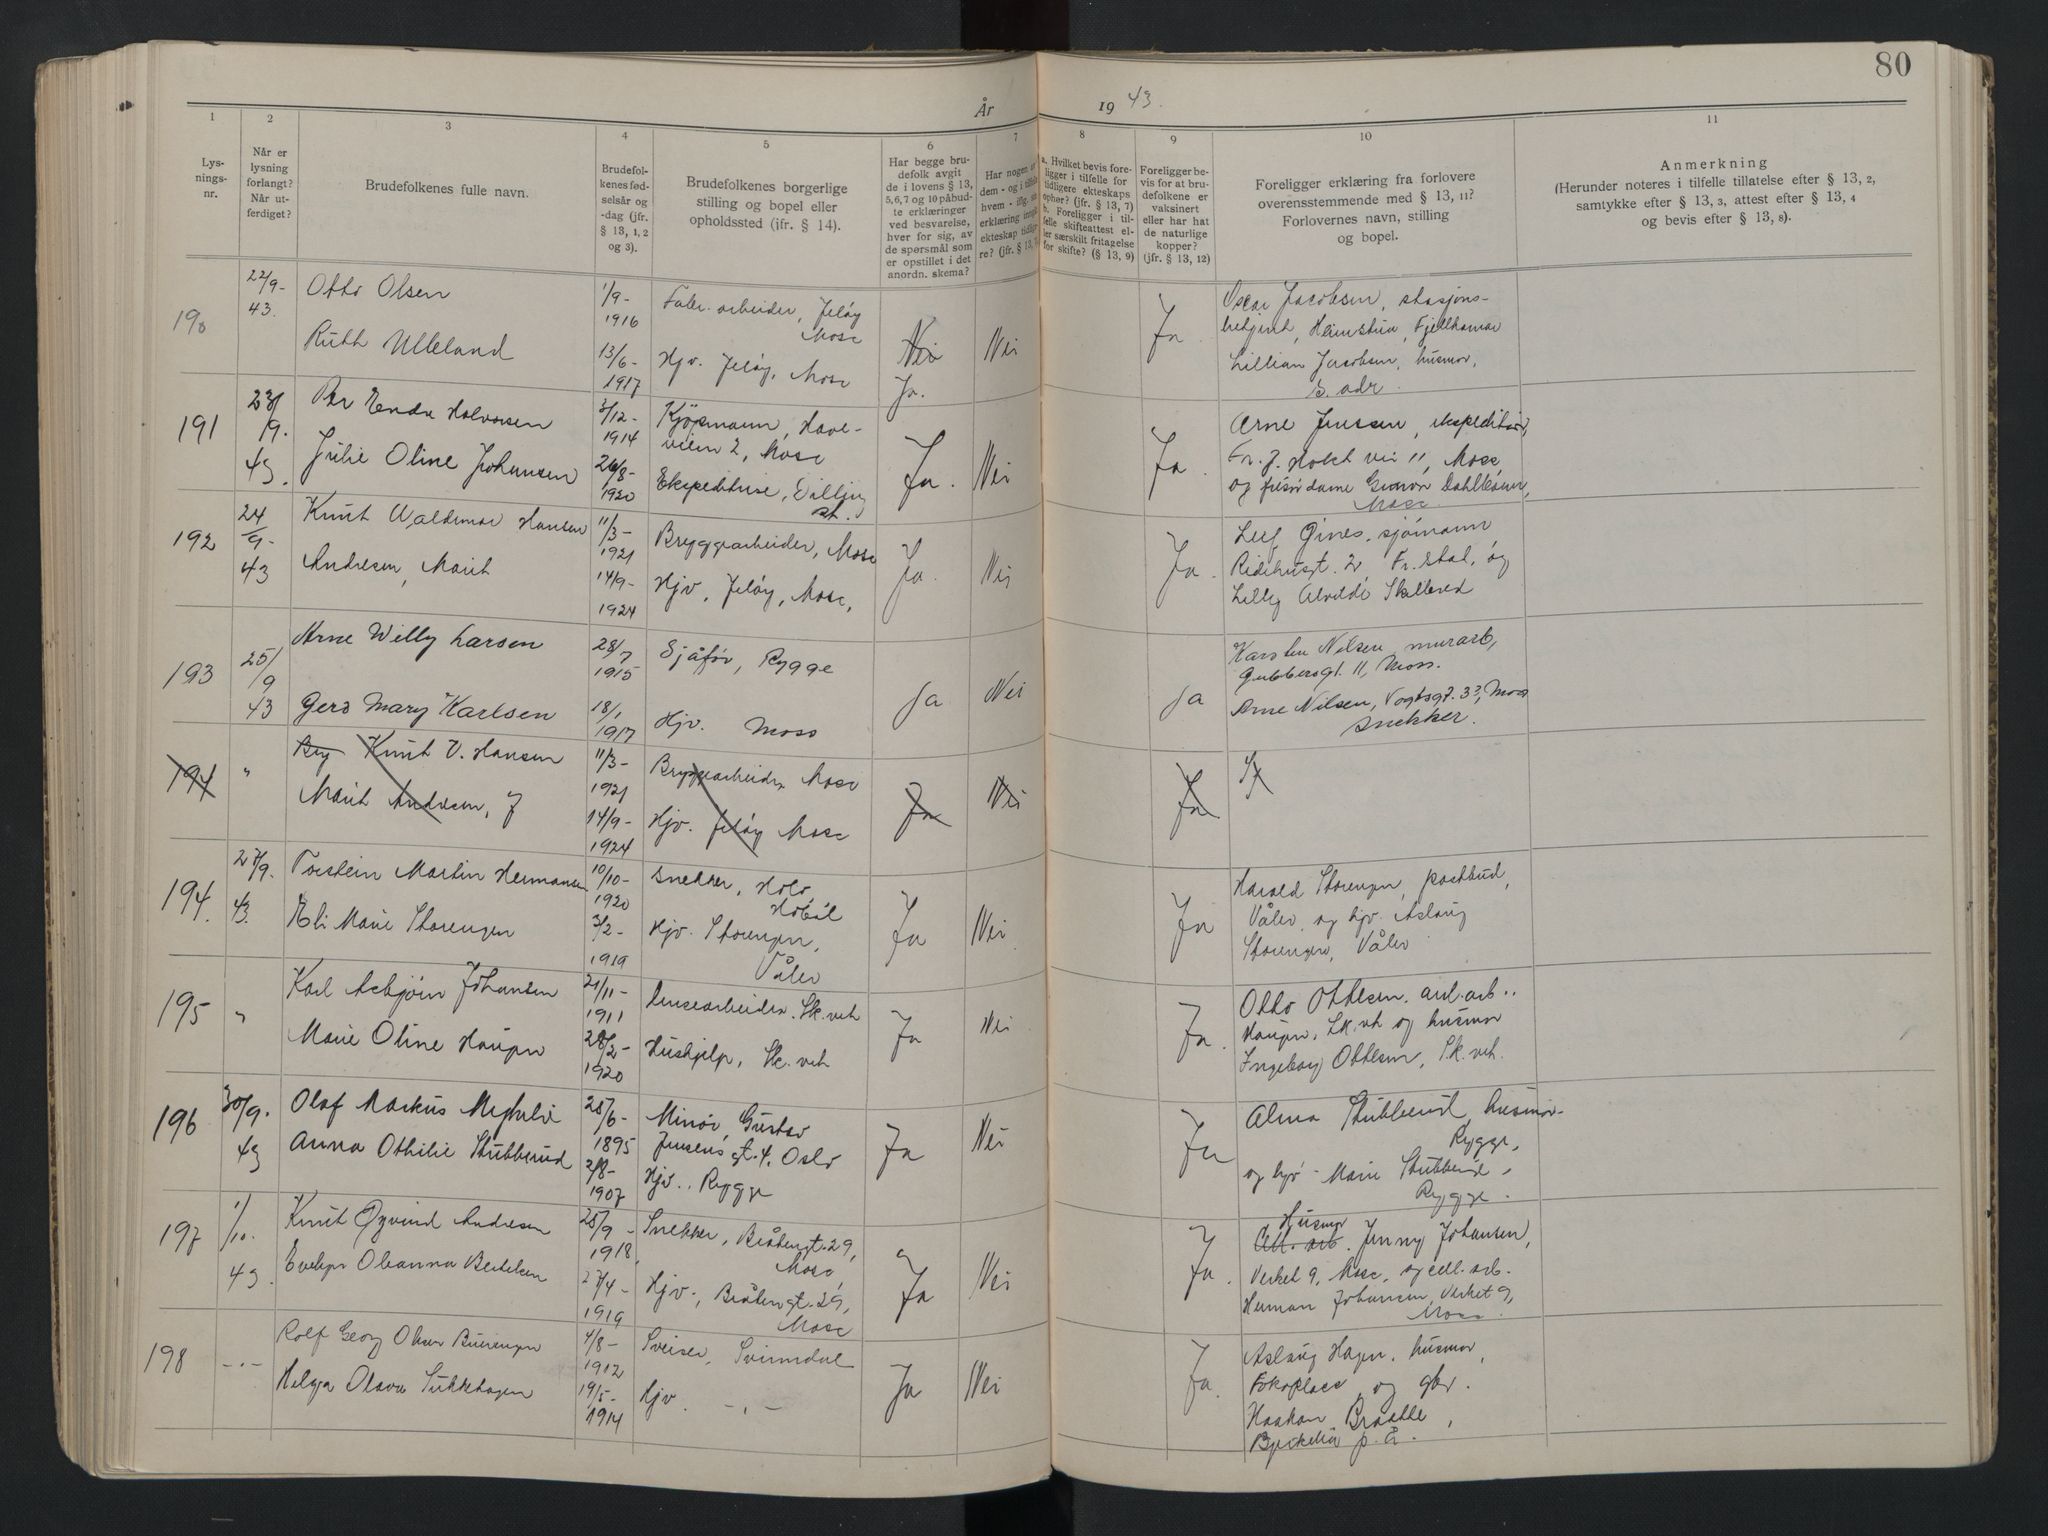 80
År 19 43.
1 2 3 4 5 6 7 8 9 10 11
Lys-
nings-
nr.
Når er
lysning
forlangt?
Når ut-
ferdiget?
Brudefolkenes fulle navn.
Brudefol-
kenes fød-
selsår og
-dag (jfr.
§ 13, 1, 2
og 3).
Brudefolkenes borgerlige
stilling og bopel eller
opholdssted (jfr. § 14).
Har begge bru-
defolk avgit
de i lovens § 13,
5, 6, 7 og 10 påbud-
te erklæringer
ved besvarelse,
hver for sig, av
de spørsmål som
er opstillet i det
anordn. skema?
Har nogen av
dem - og i tilfelle
hvem - iflg. sin
erklæring inngått
ekteskap tidlige-
re? (jfr. § 13,
a. Hvilket bevis fore-
ligger i tilfelle for
tidligere ekteskaps
ophør? (jfr. § 13, 7)
b. Foreligger i til-
felle skifteattest el-
ler særskilt fritagelse
for skifte? (§ 13, 9)
Foreligger be-
vis for at bru-
defolkene er
vaksinert
eller har hat
de naturlige
kopper?
(jfr. § 13, 12)
Foreligger erklæring fra forlovere
overensstemmende med § 13, 11?
Forlovernes navn, stilling
og bopel.
Anmerkning
(Herunder noteres i tilfelle tillatelse efter § 13, 2,
samtykke efter § 13, 3, attest efter § 13, 4
og bevis efter § 13, 8).
190
22/9-
43.
Otto Olsen
Ruth Ulleland
1/9-
1916
13/6-
1917
Fabr. arbeider, Jeløy
Moss
Hjv. Jeløy, Moss
Nei
Ja.
Nei
Ja
Oscar Jacobsen, stasjons-
betjent, Heimstua, Fjellhamar
Lillian Jacobsen, husmor,
s. adr.
191
23/
9.
43.
Per Endre Halvorsen
Julie Oline Johansen
3/12-
1914
26/8-
1920
Kjøpmann, Have-
veien 2, Moss
Ekspeditrise, Dilling
st.
Ja.
Nei
Ja.
Arne Jenssen, ekspeditør,
Fr. J. Holst vei 11, Moss,
og frisørdame Gunvor
Moss
192
24
/9-
43
Knut Waldemar Hansen
Andresen, Marit
11/3-
1921
14/9-
1924
Bryggearbeider, Moss
Hjv, Jeløy, Moss,
Ja.
Nei
Ja.
Leif Gines, sjømann
Ridehusgt. 2 Fr. stad, og
Lilly Alvilde
193
25/
9
43
Arne Willy Larsen
Gerd Mary Karlsen
28/7
1915
18/1
1917
Sjåfør, Rygge
Hjv. Moss
Ja
Nei
Ja
Karsten Nilsen, murarb,
Gubbersgt. 11, Moss.
Arne Nilsen, Vogtsgt. 3?, Moss
snekker.
194
"
Bry Knut V. Hansen
Marit Andresen, J
11/3-
1921
14/9-
1924
Bryggearbeider Moss
Hjv. Jeløy Moss
Ja
Nei
Ja
194.
27/9.
43.
Torstein Martin Hermansen
Eli Marie Storengen
10/10-
1920
3/2-
1919
Snekker, Holo,
Hobøl
Hjv. Storengen,
Våler
Ja
Nei
Ja
Harald Storengen, postbud,
Våler, og hjv. Aslaug
Storengen, Våler
195
"
Karl Asbjørn Johansen
Marie Oline Haugen
21/11-
1911
28/2-
1920
Lensearbeider. Sk. vet
Hushjelp, Sk. vet
Ja
Nei
Ja.
Otto Ottesen. anl. arb..
Haugen, Sk. vet og husmor
Ingeborg Ottesen, Sk. vet.
196
30/9.
43
Olaf Markus
Anna Othilie Stubberud
28/6-
1895
2/8-
1907
Minør, Gustav
Jensens gt. 4, Oslo
Hjv.. Rygge
Ja
Nei
Ja
Alma Stubberud, husmor-
Rygge,
og hjv - Marie Stubberud,
Rygge.
197
1/
10.
43.
Knut Øyvind Andresen
Evelyn Oleanna Bertelsen
25/9-
1918,
27/4-
1919
Snekker, Bråtengt. 29,
Moss,
Hjv-, Bråtengt. 29,
Moss
Ja
Nei
Ja.
Husmor
Cell. arb. Jenny Johansen,
Verket 9, Moss, og cell. arb.
Herman Johansen, Verket 9,
Moss.
198
-"-
Rolf Georg Olsen Buerengen
Helga Olava Sukkhagen
4/8-
1912
19/5-
1914
Sveiser, Svinndal
Hjv. -"-
Ja
Nei
Ja.
Aslaug Hagen, husmor,
Foksplass, og gbr.
Haakon Braatle,
Bjerkelia p. å.